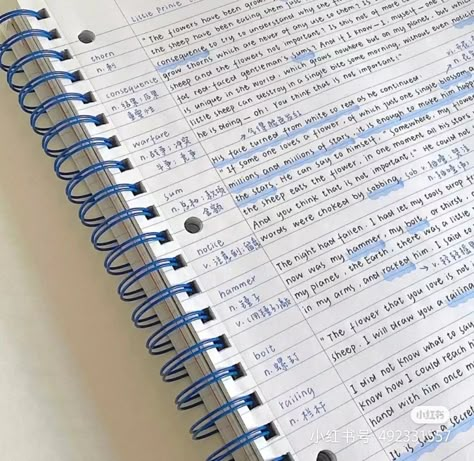 Little Prince
"The flowers have been grow
the sheep have been eating them just
consequence to try to understand why the
grow thorns which are never of any use to them? Is the
sheep and the flowers not important? Is this not of more
fat red-faced gentleman's sums? And if I know - I, myself - one
is unique in the world, which grows nowhere but on my planet, but which
little sheep can destroy in a single bite some morning, without even
he is doing - oh! You think that is not important!"
His face turned from white to red as he continued:
"If some one loves a flower, of which just one single blossom
millions and millions of stars, it is enough to make him happy
the stars. He can say to himself: 'Somewhere, my flower
the sheep eats the flower, in one moment all his stars
And you think that is not important!" He could not
words were choked by sobbing.
The night had fallen. I had let my tools drop
now was my hammer, my bolt, or thirst,
my planet, the Earth, there was a little
in my arms, and rocked him. I said
"The flower that you love is not
sheep. I will draw you a railing
I did not know what to say
know how I could reach him
hand with him once m
It is such a secre
thorn
n. 刺
consequence
n. 结果; 后果
重要性
warfare
n. 战争; 冲突
斗争; 竞争
sum
n. 总和;
金额
notice
v. 注意到;
hammer
n. 锤子
bolt
n. 螺钉
railing
n. 栏杆
小红书
小红书号 492331557